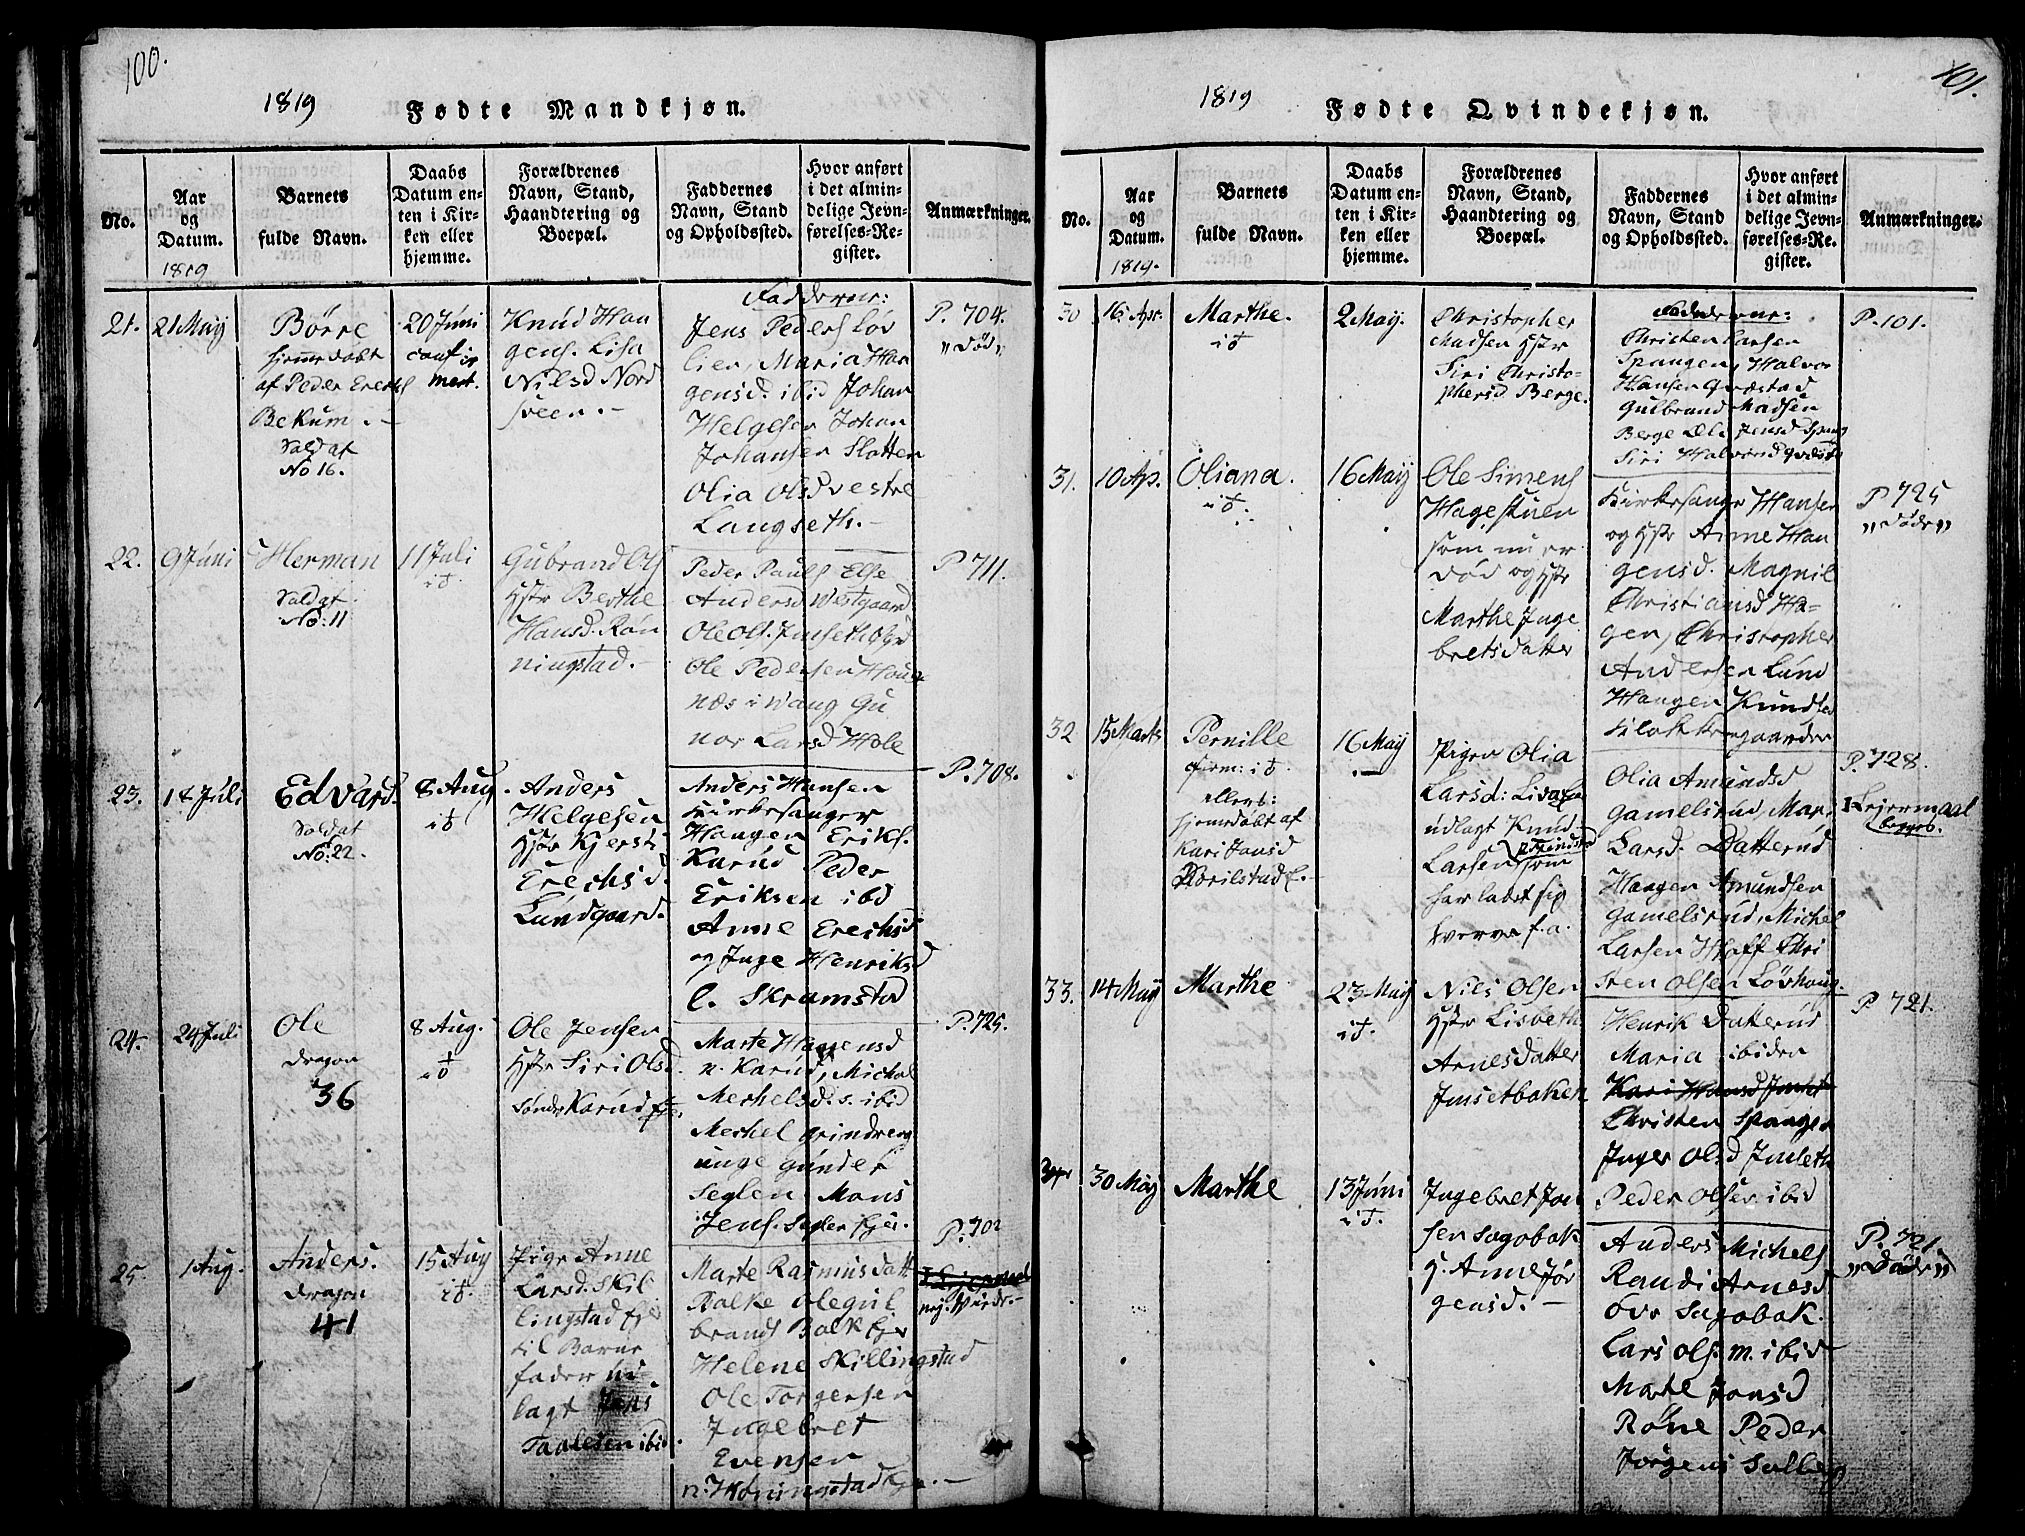 100.
1819
Fødte Mandkjøn.
No.
Aar
og
Datum.
1819
Barnets
fulde Navn.
Daabs
Datum en-
ten i Kir-
ken eller
hjemme.
Forældrenes
Navn, Stand,
Haandtering og
Boepæl.
Faddernes
Navn, Stand
og Opholdssted.
Hvor anført
i det almin-
delige Jevn-
førelses-Re-
gister.
Anmærkninger.
21.
21 May
Börre
hjemdøbt
af Peder
Bekum.-
Soldat
No 16.
20 Juni
confir
mert.
Knud Han
gens. Lisa
Nilsd Nord
sveen.-
Faddere:
Jens Peders Löv
lien, Maria Han
gensd. ibid Johan
Helgesen Johan
Johansen Slotten
Olia Olsd vestre
Langseth.-
P. 704.
„död„
22.
9 Juni
Herman
Soldat
No: 11
11 Juli
Gubrand Ols
Hstr Berthe
Hansd. Rön
ningstad.-
Peder Pauls Else
Andersd Westgaard
Ole Ols.
Ole Pedersen
næs i Wang Gu
nor Larsd Hole
P 711.
23.
14 Juli
Edvard.
Soldat
No: 22.
8 Aug.
Anders
Helgesen
Hstr Kjersti
Erichsd.
Lundgaard.
Anders Hansen
Kirkesanger
Haagen Eriks.
Karud Peder
Eriksen ibd
Anne Erechsd
og Inge Henriksd
l. Skramstad
P. 708.
24.
24 Juli
Ole
Dragon
36
8 Aug.
Ole Jensen
Hstr Siri Olsd.
Sönde Karud Eje.
Marte Haagensd
n. Karud, Michel
Mechelsd. s. ibid
Mechel grindreng
unge gunder
Seglen Mons
Jens. Segler Ejer.
P. 725.
25.
1 Aug.
Anders.
Dragon
41
15 Aug
Pige Anne
Larsd. Skil
lingstad Eje
til Barne
fader ud-
lagt Jens
Taalesen ibid.
Marte Rasmusdatt
Balke Ole gul
brands Balk Eje
Helene Skillingstad
Ole Torgersen
Ingebret
Evensen
n. Köningstad Eje.-
P. 702
101.
1819
Fødte Qvindekjøn.
No.
Aar
og
Datum.
1819.
Barnets
fulde Navn.
Daabs
Datum en-
ten i Kir-
ken eller
hjemme.
Forældrenes
Navn, Stand,
Haandtering og
Boepæl.
Faddernes
Navn, Stand
og Opholdssted.
Hvor anført
i det almin-
delige Jevn-
førelses-Re-
gister.
Anmærkninger.
30
16 Apr.
Marthe.
2 May.
Christopher
Madsen Hstr
Siri Christo-
phersd Berge.
Faddere:
Christen Larsen
Spangen, Halvor
Hansen Qvæstad
Gulbrand Madsen
Berge Jensd Spang
Siri Halvorsd Qvæstad
P. 101.
31.
10 Ap.
Oliana.
16 May
Ole Simens
Hagestuen
som nu er
död og Hstr
Marthe Inge
bretsdatter
Kirkesanger Hansen
og Hstr Anne Han
gensd. Magnil
Christiansd Ha-
gen, Christopher
Andersen Lund
Haagen
P 725
„döde„
32
15 Marts
Pernille
hjemdøbt af
Kari Jonsd
16 May
Pigen Olia
Larsd: Lisa
udlagt Knud
Larsen som
har ladet sig
hverve f. a.
Olia Amundsd
Gamelsrud, Mari
Larsd. Datterud
Haagen Amundsen
Gamelsrud, Michel
Larsen Hoff Chri
sten Olsen Lövhaug.
P. 728.
1 Lejermaal
begge.
33.
14 May
Marthe
23 May
Nils Olsen
Hstr Lisbeth
Arnesdatter
Imsetbaken
Henrik Datterud
Maria ibiden
Christen Spangen
Inger Olsd Imseth
Peder Olsen ibid
P 721.
34
30 May
Marthe
13 Juni
Ingebret Jon
sen Sagobak
H. Anne Jör
gensd.-
Anders Michels
Randi Arnesd
övr Sagobak.
Lars Ols. m. ibid
Marte Jonsd
Röne Peder
Jörgens Solberg
P. 721.
„Döde„